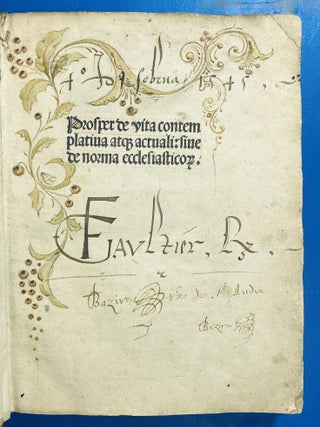 4º Id9 februa 1545
Prosper de vita contem
platiua atqꝫ actuali: siue
de norma ecclesiasticoꝝ.
Faultier. Re.
Bazire de St Andre
Bazire